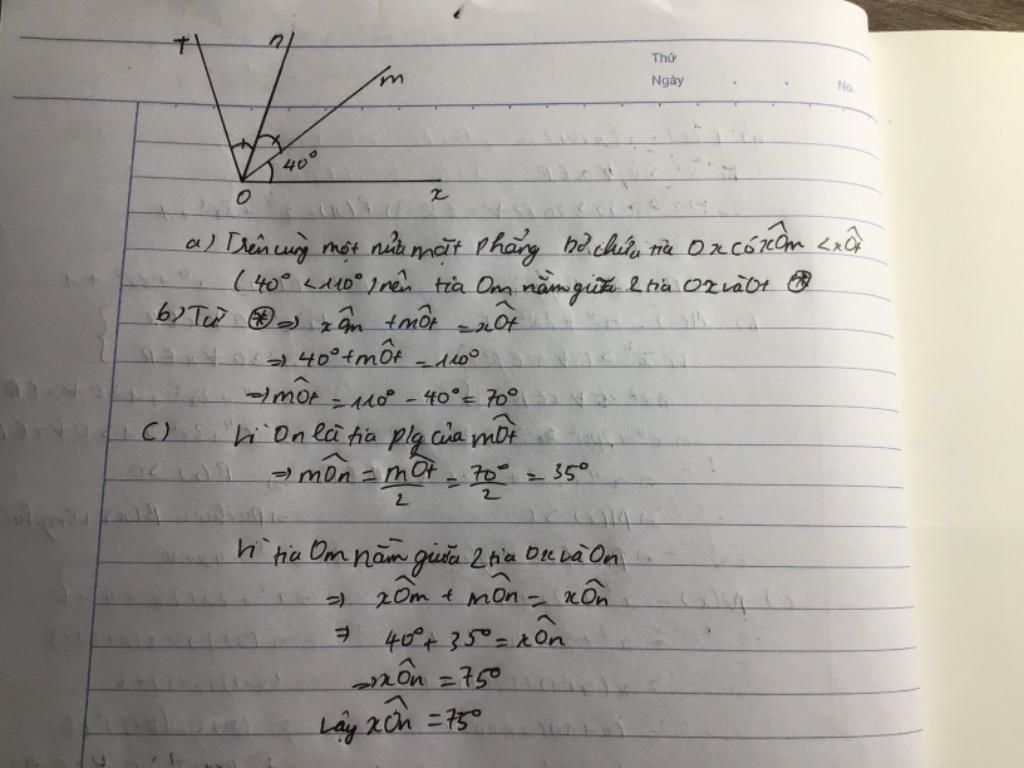 t n m
Thứ
Ngày . . No.
40°
O x
a) Trên cùng một nửa mặt phẳng bờ chứa tia Ox có xÔm < xÔt
(40° < 110°) nên tia Om nằm giữa 2 tia Ox và Ot ⊛
b) Từ ⊛ => xÔm + mÔt = xÔt
=> 40° + mÔt = 110°
=> mÔt = 110° - 40° = 70°
c) Vì On là tia p/g của mÔt
=> mÔn = mÔt/2 = 70°/2 = 35°
Vì tia Om nằm giữa 2 tia Ox và On
=> xÔm + mÔn = xÔn
=> 40° + 35° = xÔn
=> xÔn = 75°
Vậy xÔn = 75°